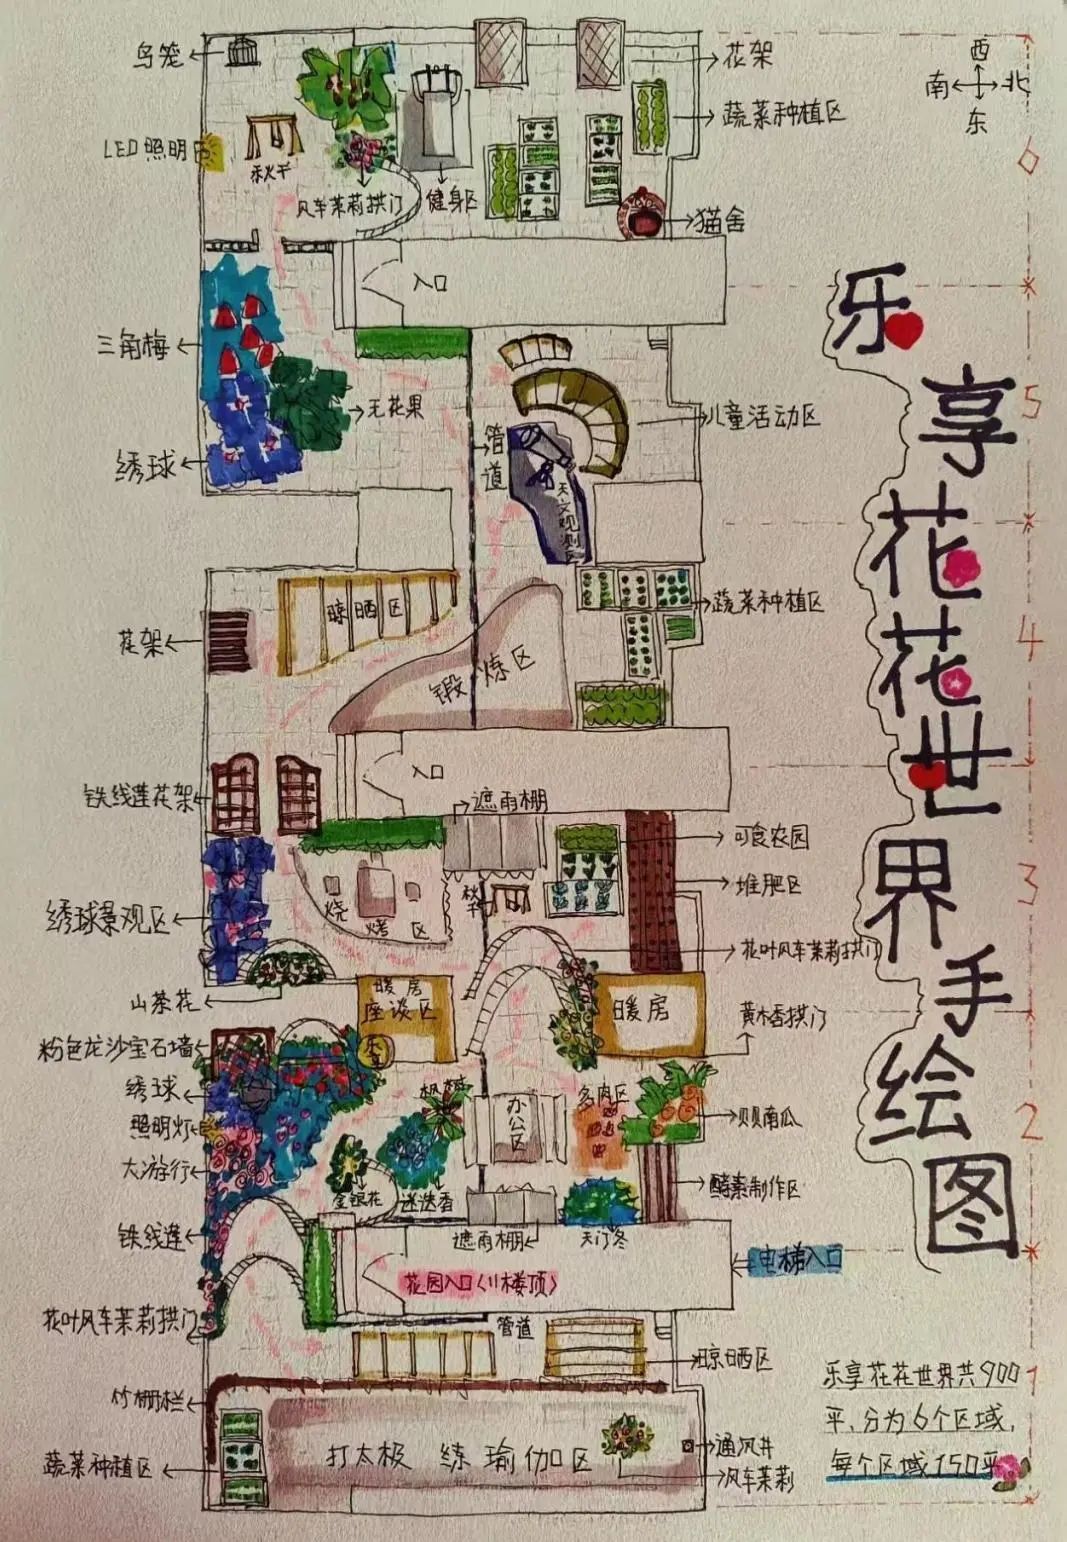 西
南 北
东
鸟笼
花架
蔬菜种植区
LED照明区
秋千
风车茉莉拱门
健身区
猫舍
6
入口
三角梅
无花果
绣球
管道
儿童活动区
天文观测区
5
晾晒区
花架
锻炼区
蔬菜种植区
4
入口
铁线莲花架
遮雨棚
可食农园
烧烤区
秋千
堆肥区
3
绣球景观区
花叶风车茉莉拱门
山茶花
暖房
座谈区
暖房
黄木香拱门
粉色龙沙宝石墙
绣球
枫树
办公区
多肉区
照明灯
贝贝南瓜
2
大游行
金银花
迷迭香
酵素制作区
铁线莲
遮雨棚
天门冬
花园入口(11楼顶)
电梯入口
花叶风车茉莉拱门
管道
晾晒区
竹栅栏
1
打太极 练瑜伽区
通风井
风车茉莉
蔬菜种植区
乐享花花世界手绘图
乐享花花世界共900
平,分为6个区域,
每个区域150平